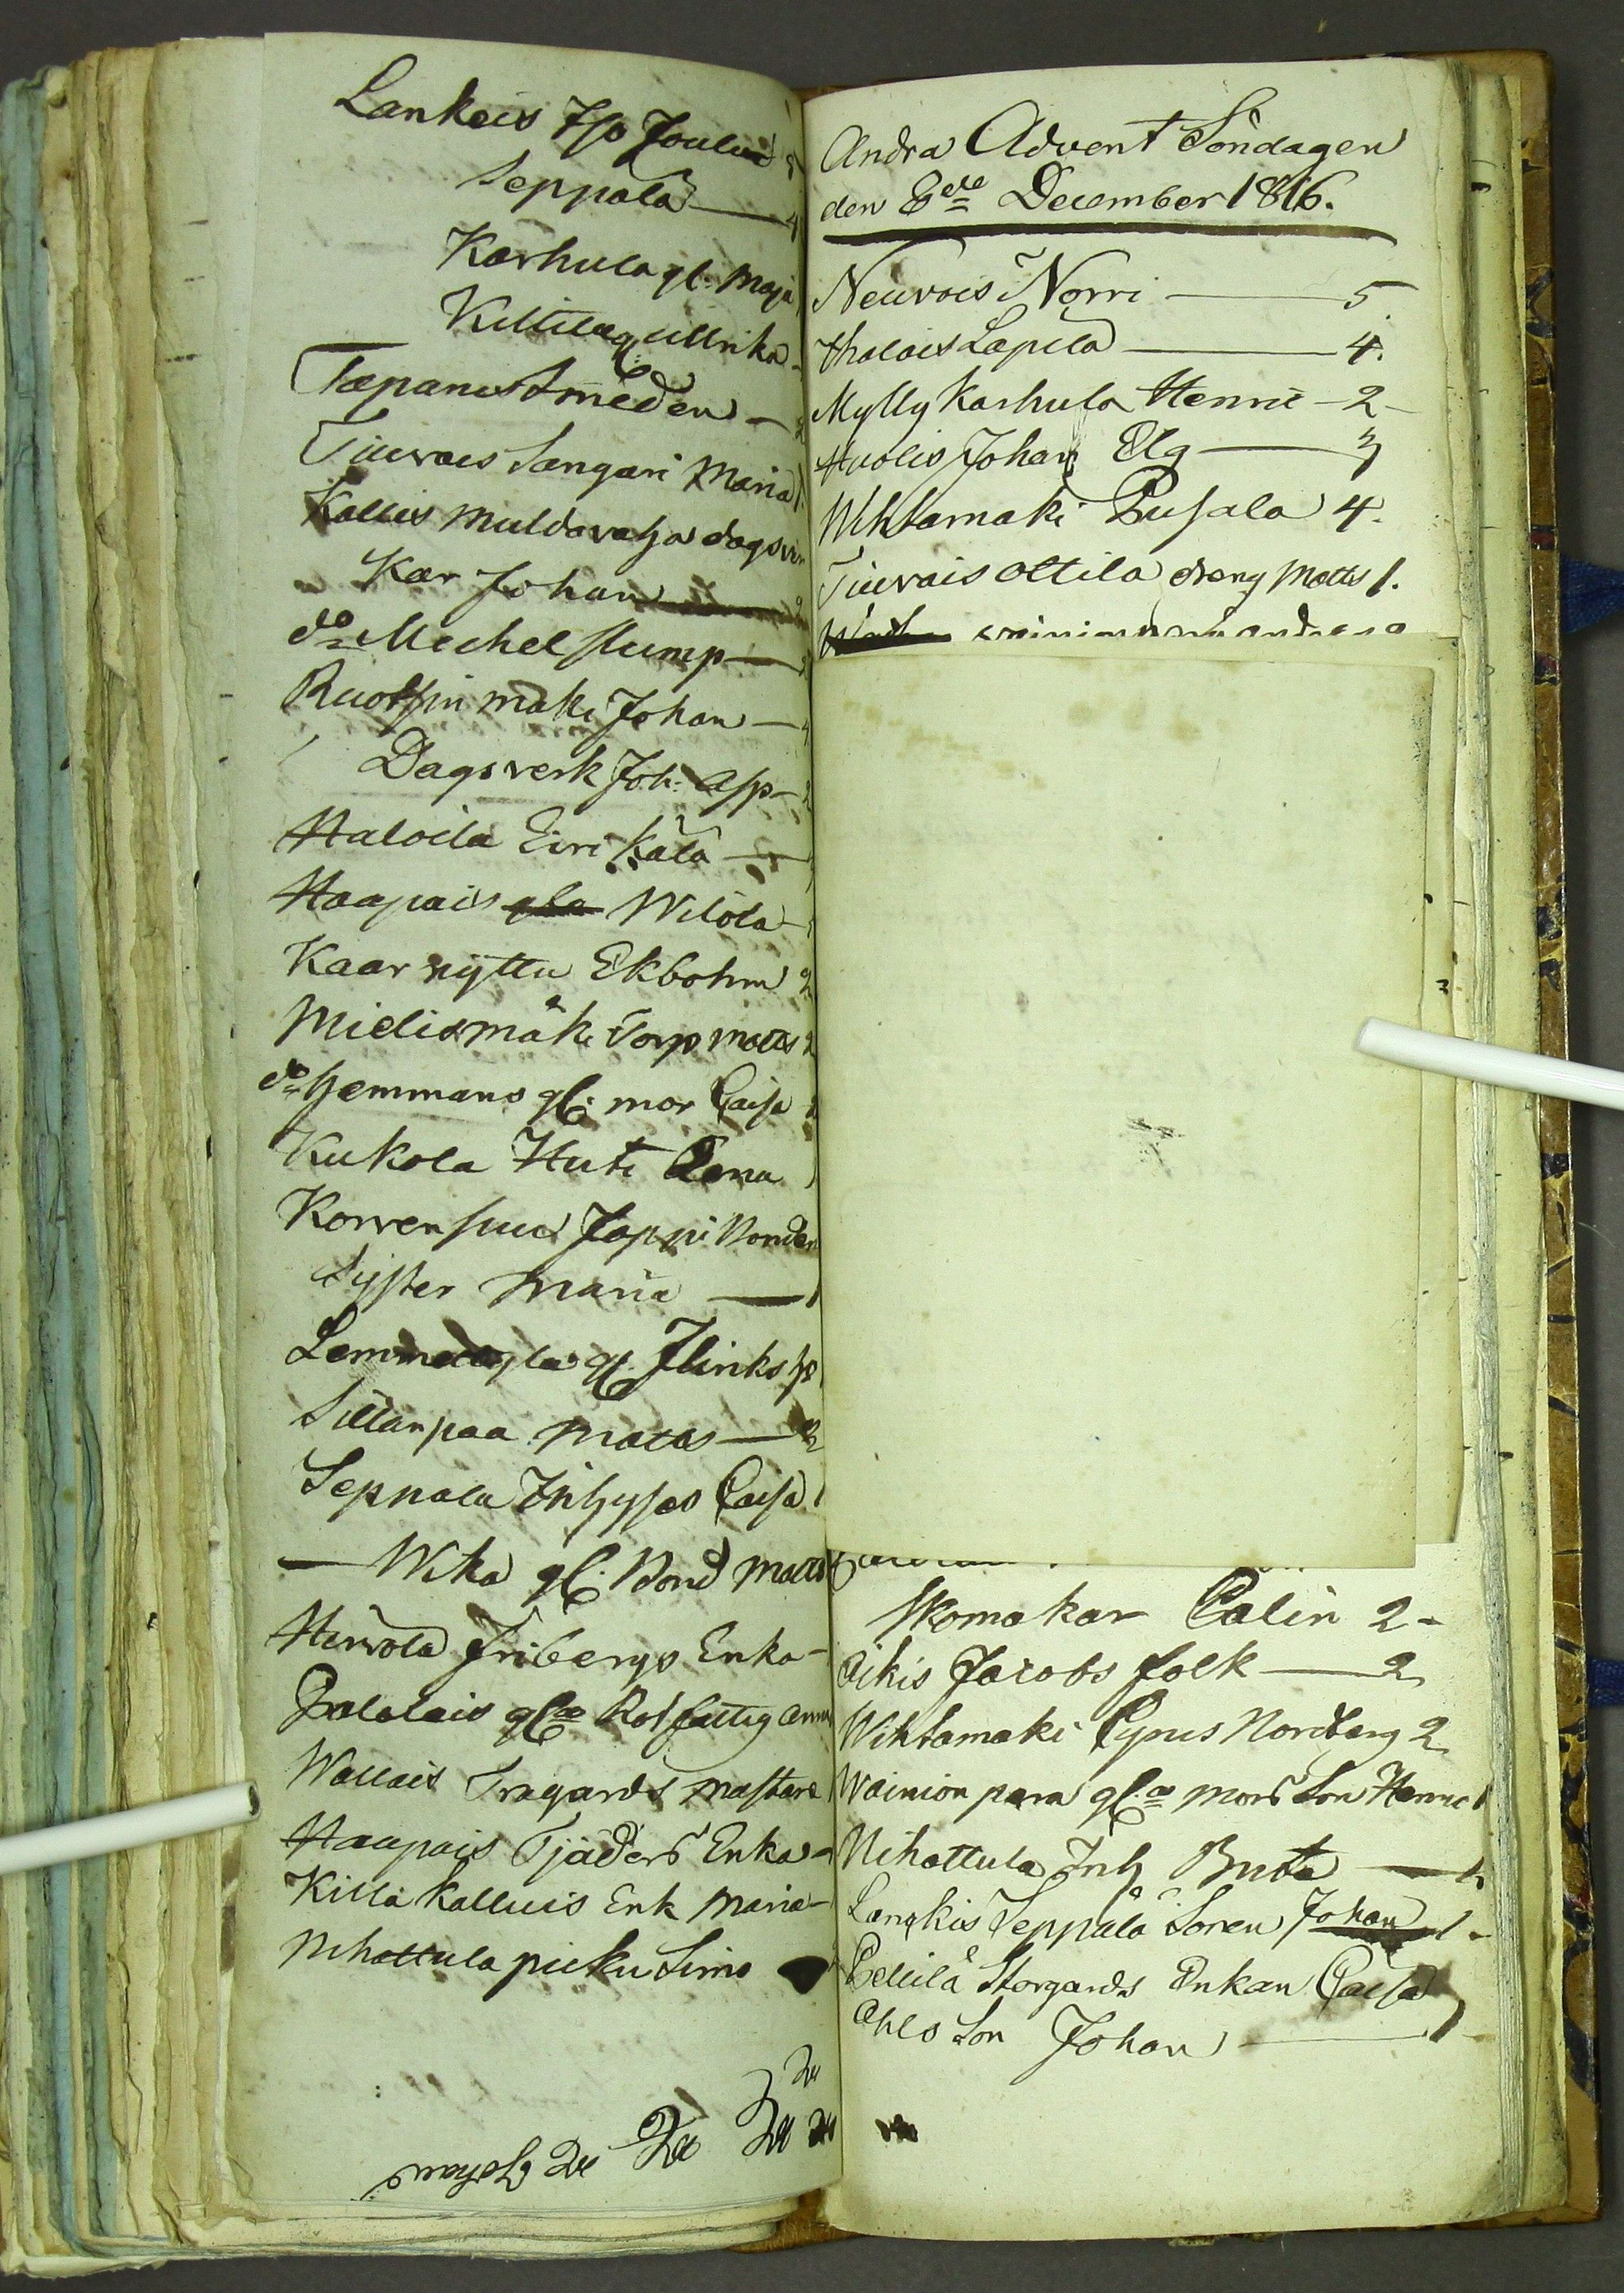 Lankois Sp Joulus
Seppala — 4
Karhula gl. Maja
Kittilag Ullrika
Tæpanis Smeden — 2
Tiuvais Sangari Maria 1
Kallis Muldavahja dagsver
Kar Johan 2
do Mechel Stump —
Ruohsin maki Johan — 4
Dagsverk Joh. Asp — 2
Haloila Eiri Kålå —
Haapais gla Wilola —
Kaar nyttu Ekbohm 2
Mielismäki Torp Matts 2
do Hemmans gl. mor Caisa 1
Kukola Huti Lena 1
Korven suu Jappi Bonden
Syster Maria — 1
gl. Flinks
Sillanpaa Matts — 2
Seppala Inhyses Caisa 1
— Wika gl. Bond Matts
Hirvola Fribergs Enka —
gla Rot fattig Anna
Wallais Tragards mastare
Haapais Tjäders Enka —
Killa Kalluis Enk Maria —
Nihattula pieku Simo
Johan
Andra Advent Söndagen
den 8de December 1816.
Neuvois Norri — 5
Halais Lapila — 4.
Mylly Karhula Henric — 2 —
Huolis Johan Elg — 3
Wihtamaki Pusala 4.
Tiuvais Ottila dräng Matts 1.
Skomakar Palin 2 —
Aikis Jacobs folk — 2
Wihtamaki Cyrus Nordberg 2
Wainion para gla mors Son Henric 1
Nihattula Inh Brita — 1
Lankis Seppälä Sonen Johan 1 —
Storgards Enkan Caisa
Ahls Son Johan — 1